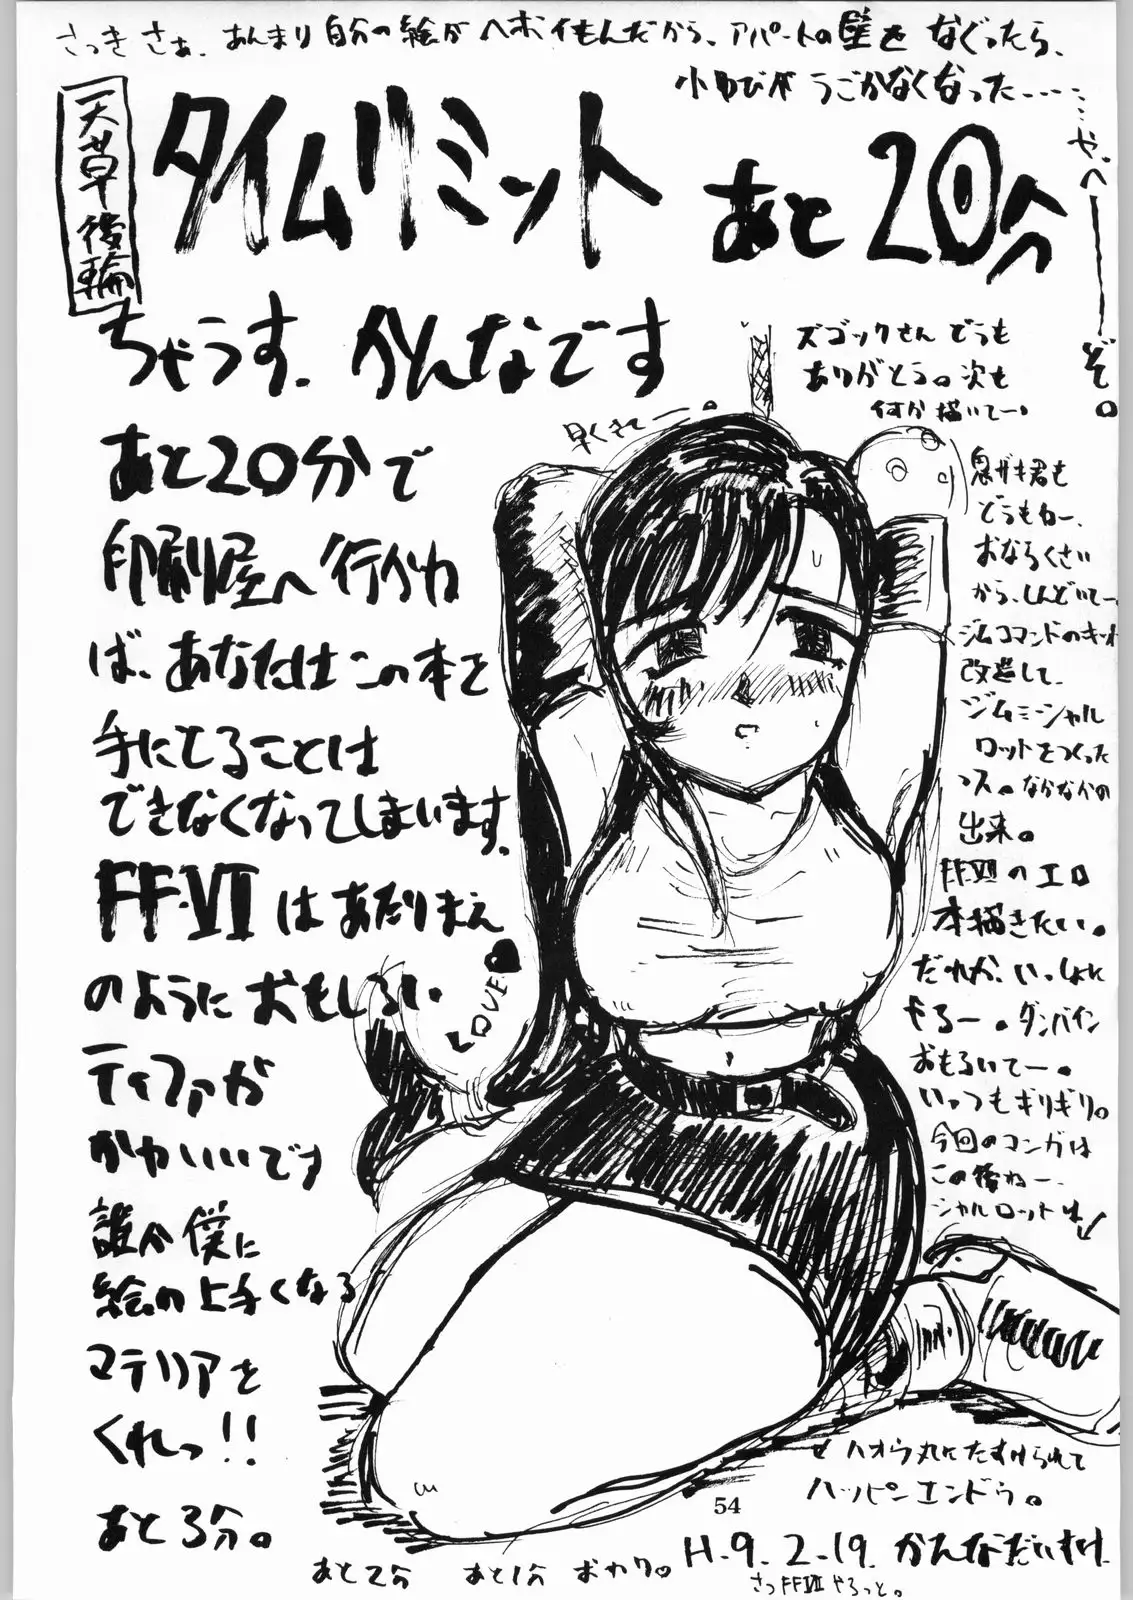 さっきさぁ、あんまり自分の絵がヘボイもんだから、アパートの壁をなぐったら、
小ゆびがうごかなくなった……
…やべーーーぞ。
天草後輪
タイムリミット あと20分
ちゃうす、かんなです
あと20分で
印刷屋へ行かね
ば、あなたはこの本を
手にてることは
できなくなってしまいます。
FF・VIIはあたりまえ
のようにおもしろい
ティファが
かわいいです
誰か僕に
絵の上手くなる
マテリアを
くれっ!!
あと3分。
あと2分 あと1分 おわり。
ズゴックさんどうも
ありがとう。次も
何か描いてー。
早くきてー。
LOVE
息ザキ君も
どうもねー、
おならくさい
から、しんどいてー。
ジムコマンドのキット
改造して、
ジムミーシャル
ロットをつくった
っス。なかなかの
出来。
FFVIIのエロ
本描きたい。
だれか、いっしょに
やろー。ダンバイン
おもろいてー。
いっつもギリギリ。
今回のマンガは
この後ねー、
シャルロットは
ハオウ丸にたすけられて
ハッピーエンドゥ。
54
H.9.2.19.かんなだいすけ
さっFFVIIやろっと。